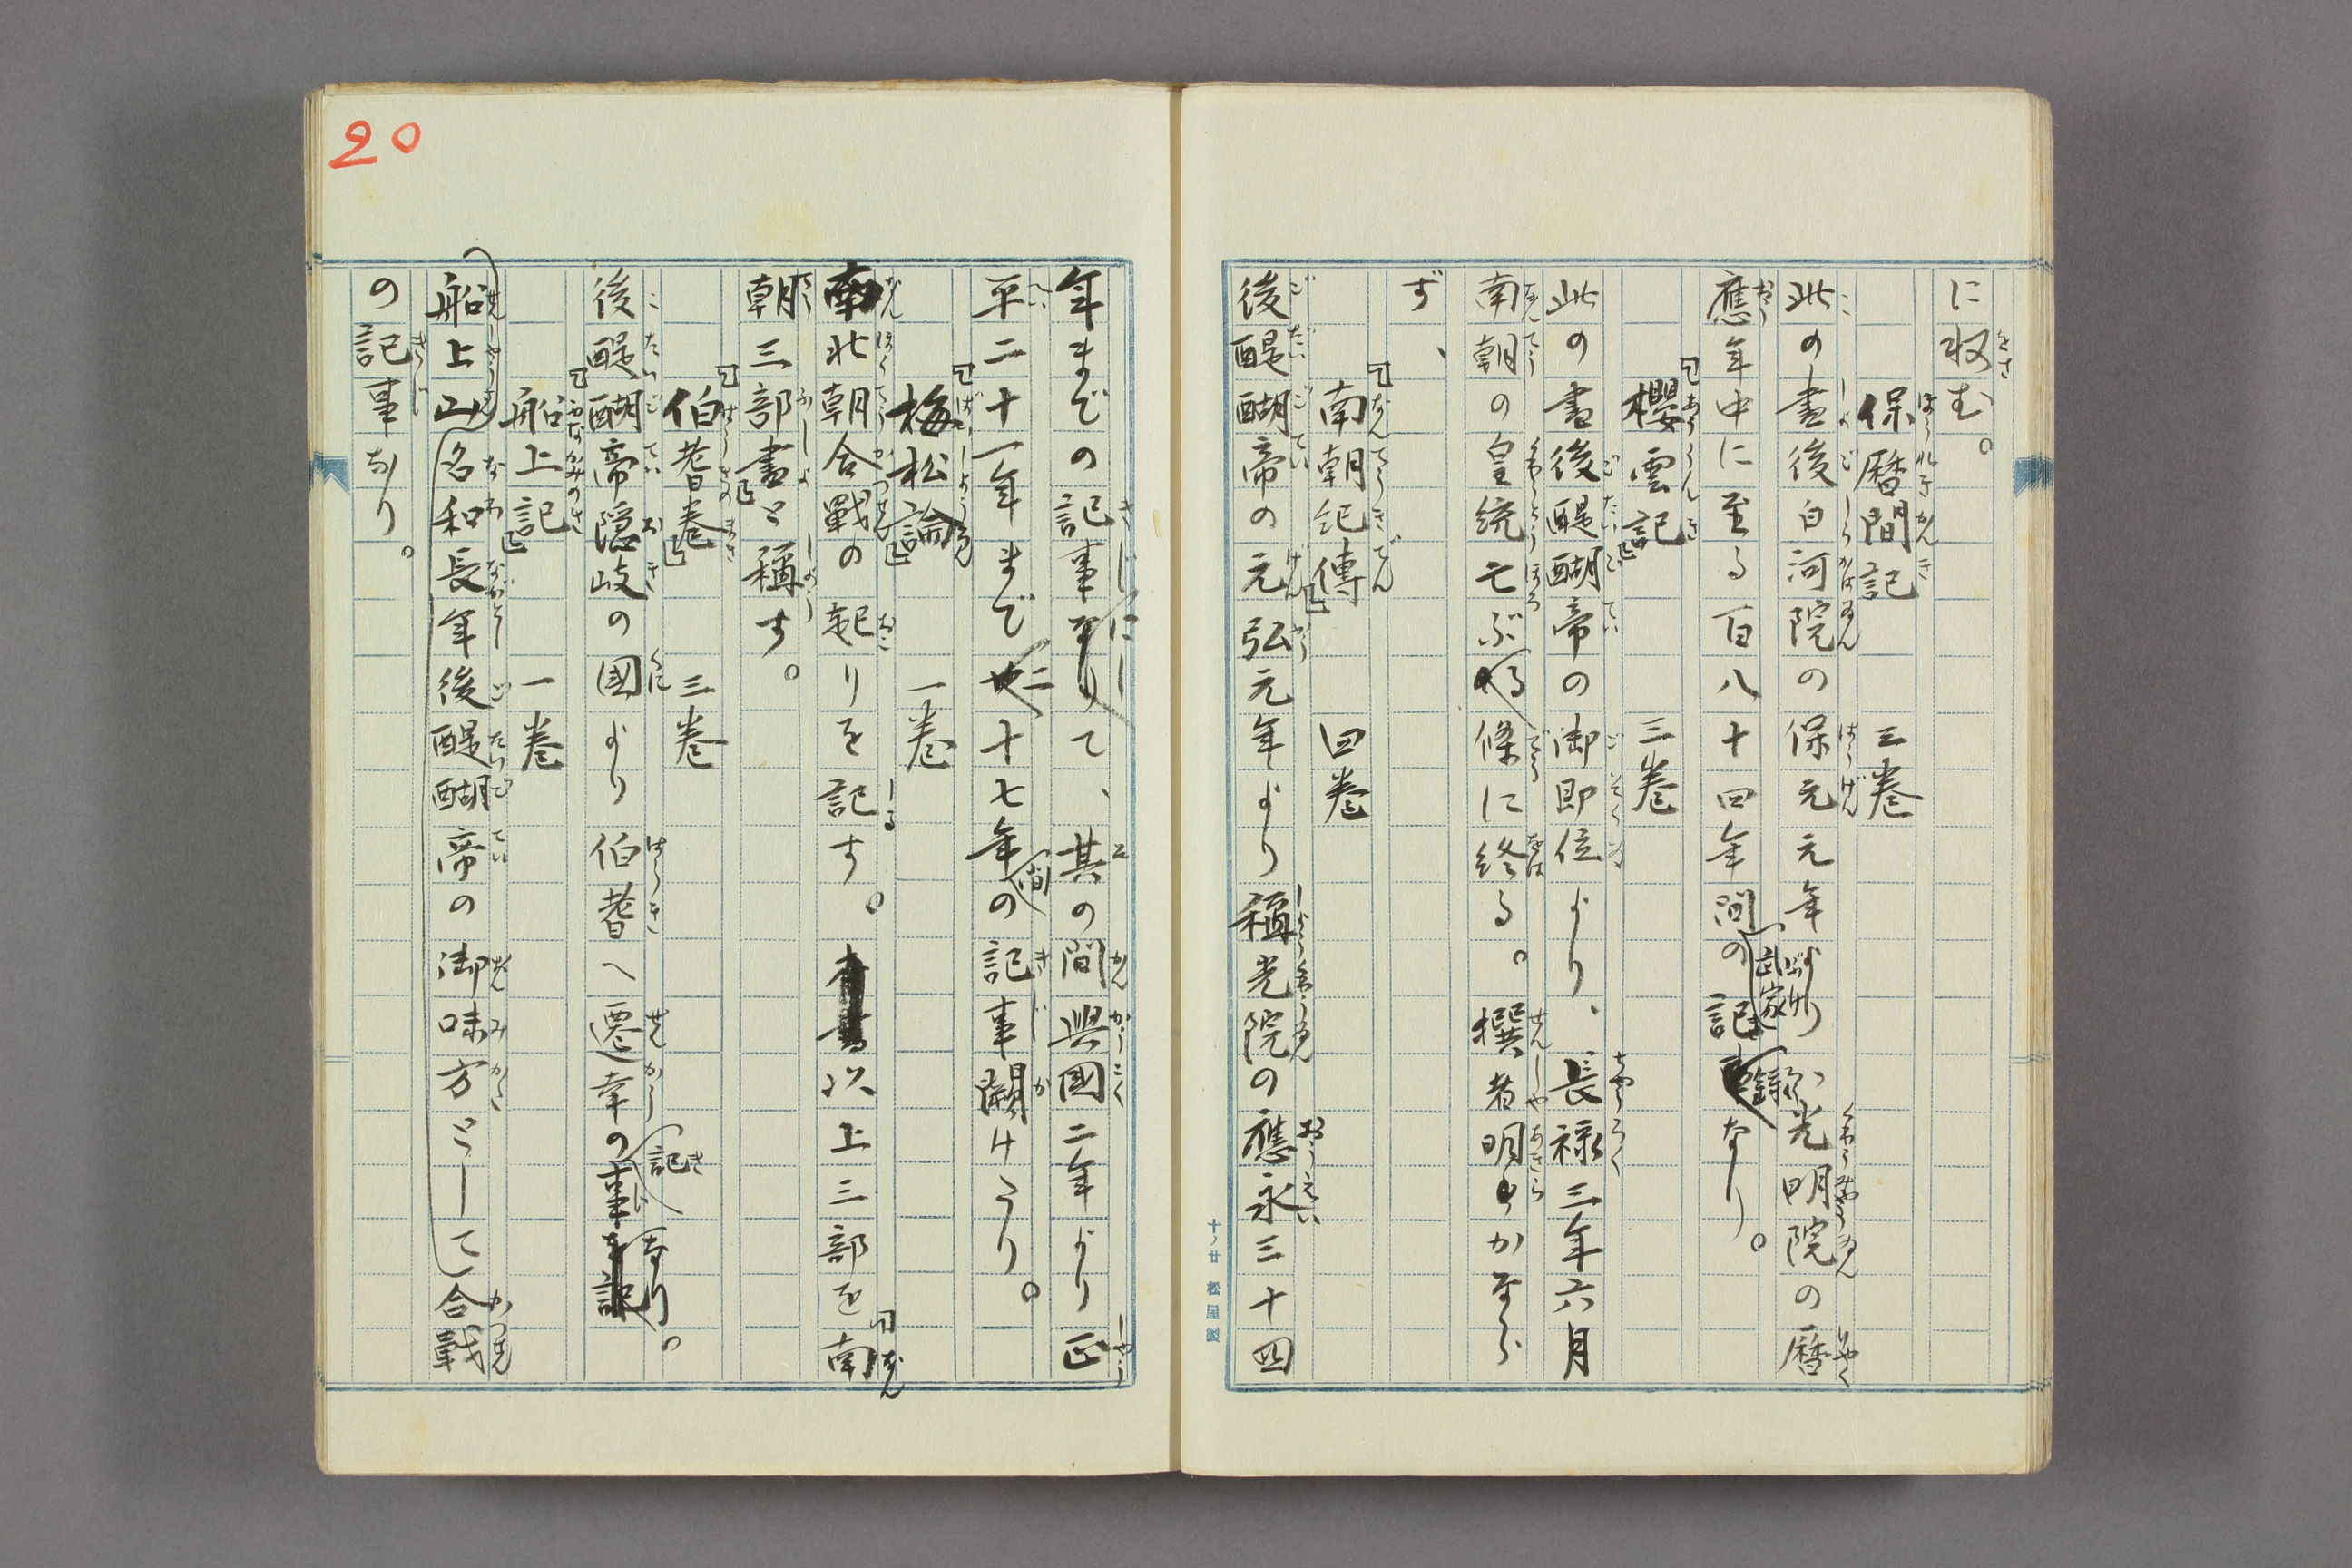 に収む。
保暦間記　三巻
此の書後白河院の保元元年より光明院の暦
應年中に至る百八十四年間の武家記録なり。
櫻雲記　三巻
此の書後醍醐帝の御即位より、長禄三年六月
南朝の皇統亡ぶる條に終る。撰者明かなら
ず、
南朝紀傳　四巻
後醍醐帝の元弘元年より稱光院の應永三十四
十ノ廿　松屋製
20
年までの記事にして、其の間興國二年より正
平二十一年まで二十七年間の記事闕けたり。
梅松論　一巻
南北朝合戰の起りを記す。以上三部を南
朝三部書と稱す。
伯耆巻　三巻
後醍醐帝隠岐の國より伯耆へ遷幸の記なり。
船上記　一巻
船上山名和長年後醍醐帝の御味方として合戰
の記事なり。